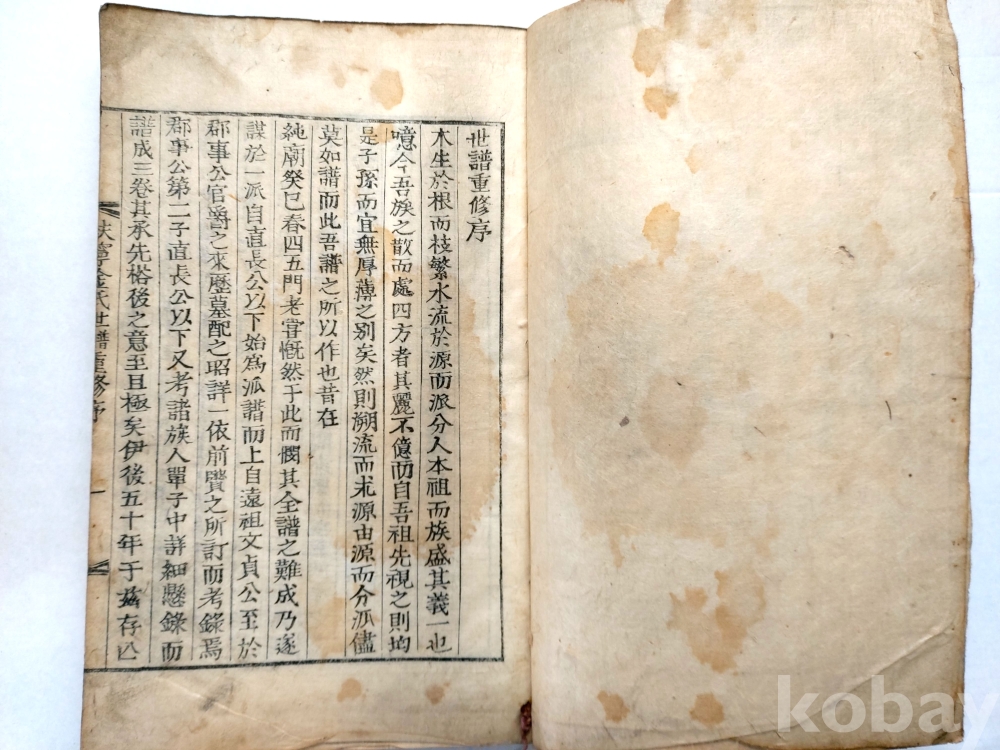 世譜重修序
木生於根而枝繁水流於源而派分人本祖而族盛其義一也
噫今吾族之散而處四方者其麗不億而自吾祖先視之則均
是子孫而宜無厚薄之别矣然則溯流而求源由源而分派儘
莫如譜而此吾譜之所以作也昔在
純廟癸巳春四五門老甞慨然于此而憫其全譜之難成乃遂
謀於一派自直長公以下始爲派譜而上自遠祖文貞公至於
郡事公官爵之來歷墓配之昭詳一依前賢之所訂而考錄焉
郡事公第二子直長公以下又考諸族人單子中詳細懸錄而
譜成三卷其承先裕後之意至且極矣伊後五十年于玆存亾
扶寧金氏世譜重修序 一
kobay